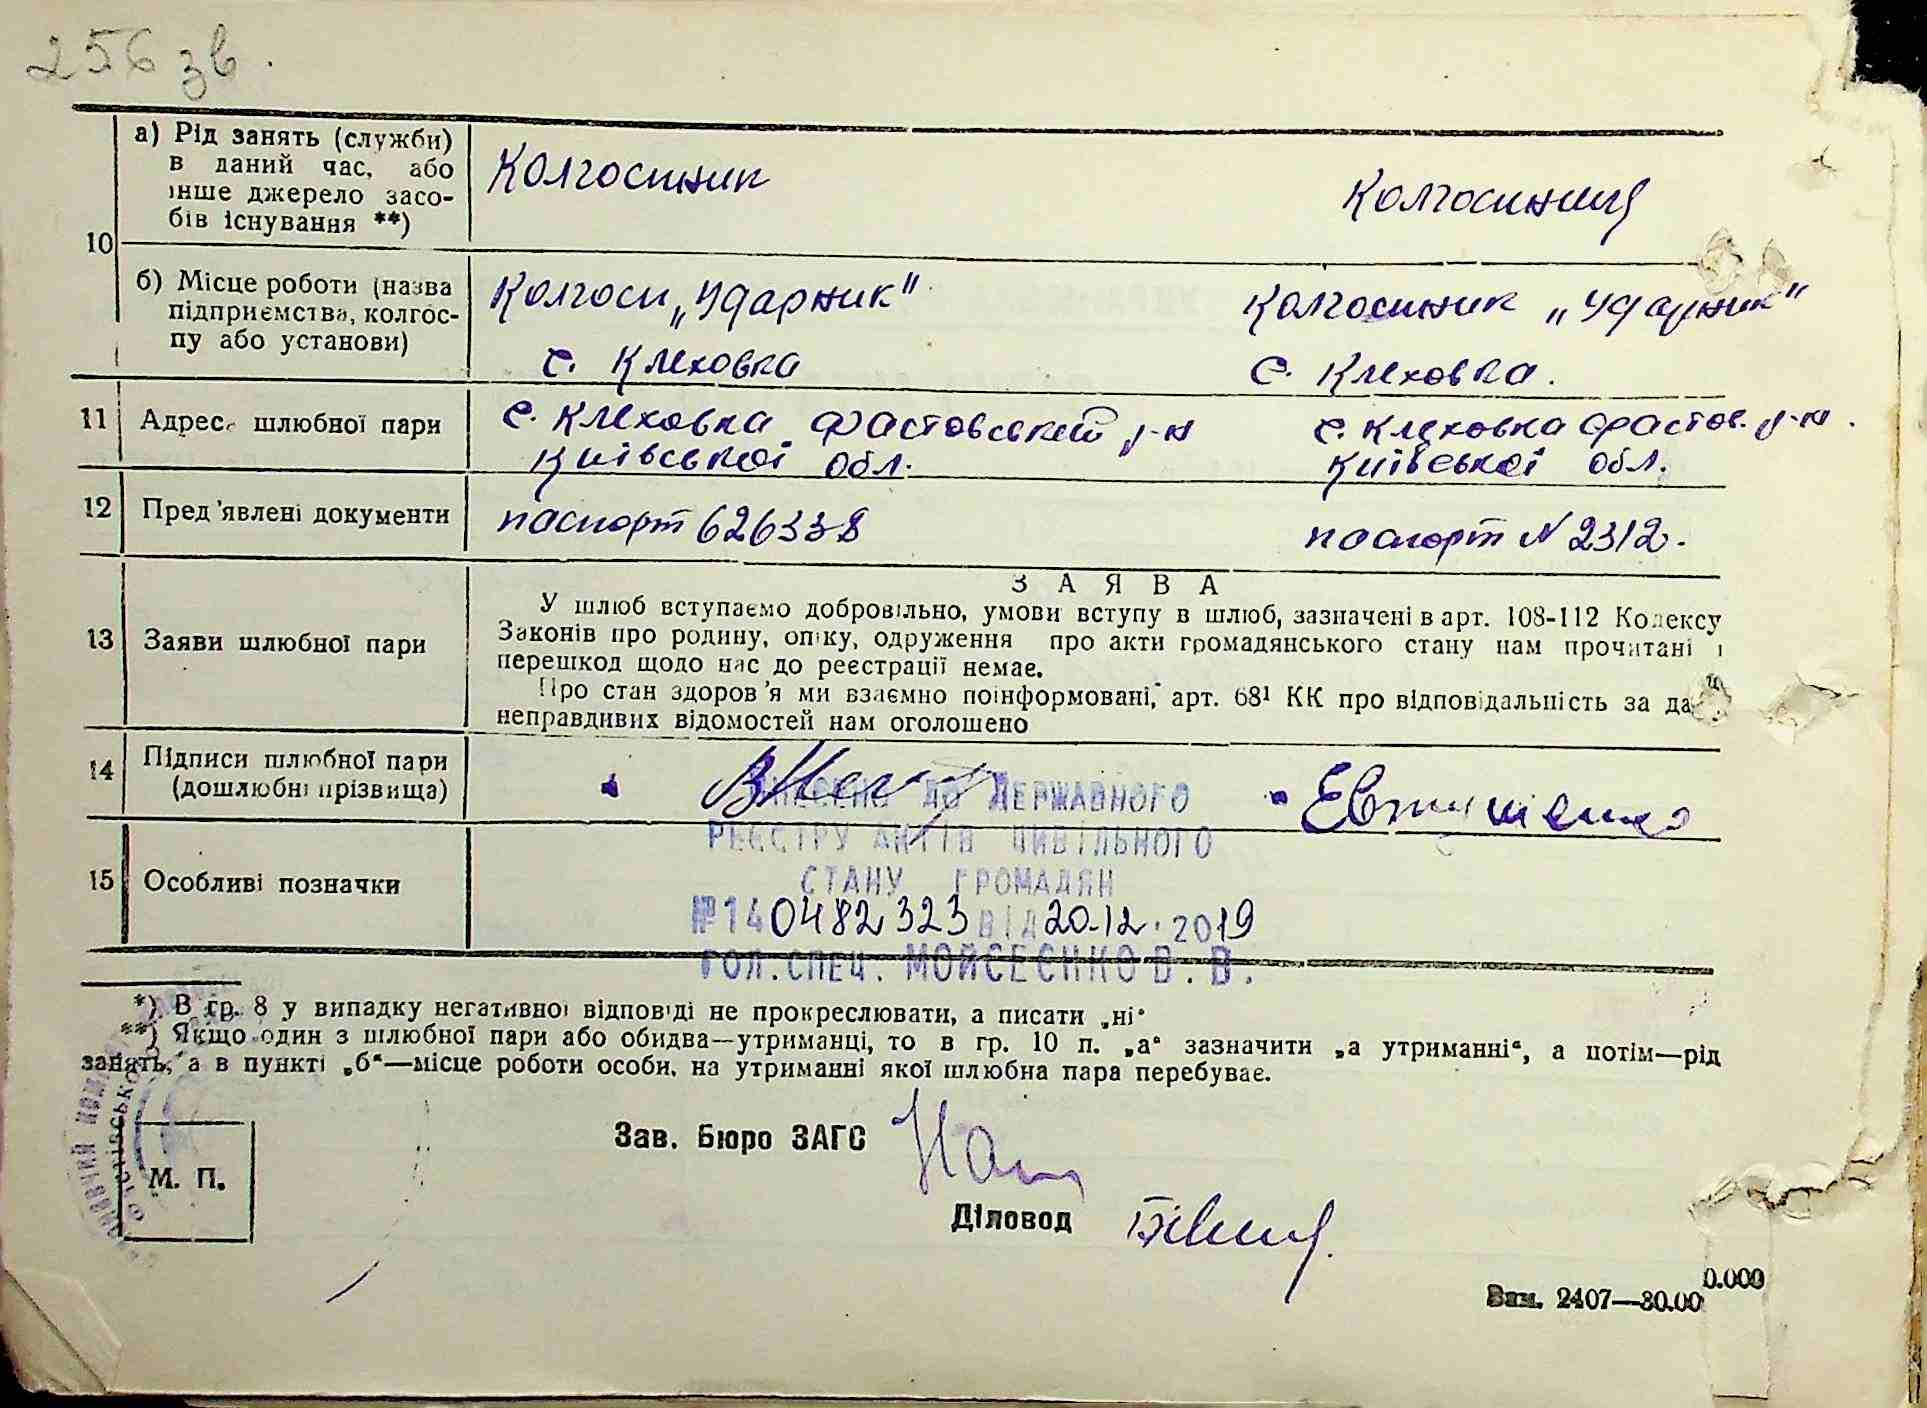 256 зв.
а) Рід занять (служби)
в даний час, або
інше джерело засо-
бів існування **)
Колгоспник
Колгоспниця
10
б) Місце роботи (назва
підприємства, колгос-
пу або установи)
Колгосп „Ударник"
с. Клеховка
Колгоспник „Ударник"
с. Клеховка.
11
Адреса шлюбної пари
с. Клеховка Фастовський р-н
Київської обл.
с. Клеховка Фастов. р-н.
Київської обл.
12
Пред'явлені документи
паспорт 626338
паспорт № 2312.
13
Заяви шлюбної пари
ЗАЯВА
У шлюб вступаємо добровільно, умови вступу в шлюб, зазначені в арт. 108-112 Кодексу
Законів про родину, опіку, одруження про акти громадянського стану нам прочитані і
перешкод щодо нас до реєстрації немає.
Про стан здоров'я ми взаємно поінформовані, арт. 68¹ КК про відповідальність за да
неправдивих відомостей нам оголошено
14
Підписи шлюбної пари
(дошлюбні прізвища)
Евтушенко
ВНЕСЕНО ДО ДЕРЖАВНОГО
РЕЄСТРУ АКТІВ ЦИВІЛЬНОГО
СТАНУ ГРОМАДЯН
№ 140482323 ВІД 20.12.2019
ГОЛ. СПЕЦ. МОЙСЕЄНКО В. В.
15
Особливі позначки
*) В гр. 8 у випадку негативної відповіді не прокреслювати, а писати „ні"
**) Якщо один з шлюбної пари або обидва—утриманці, то в гр. 10 п. „а" зазначити „а утриманні", а потім—рід
занять, а в пункті „б"—місце роботи особи, на утриманні якої шлюбна пара перебуває.
М. П.
Зав. Бюро ЗАГС
Діловод
Зам. 2407—30.00
0.000